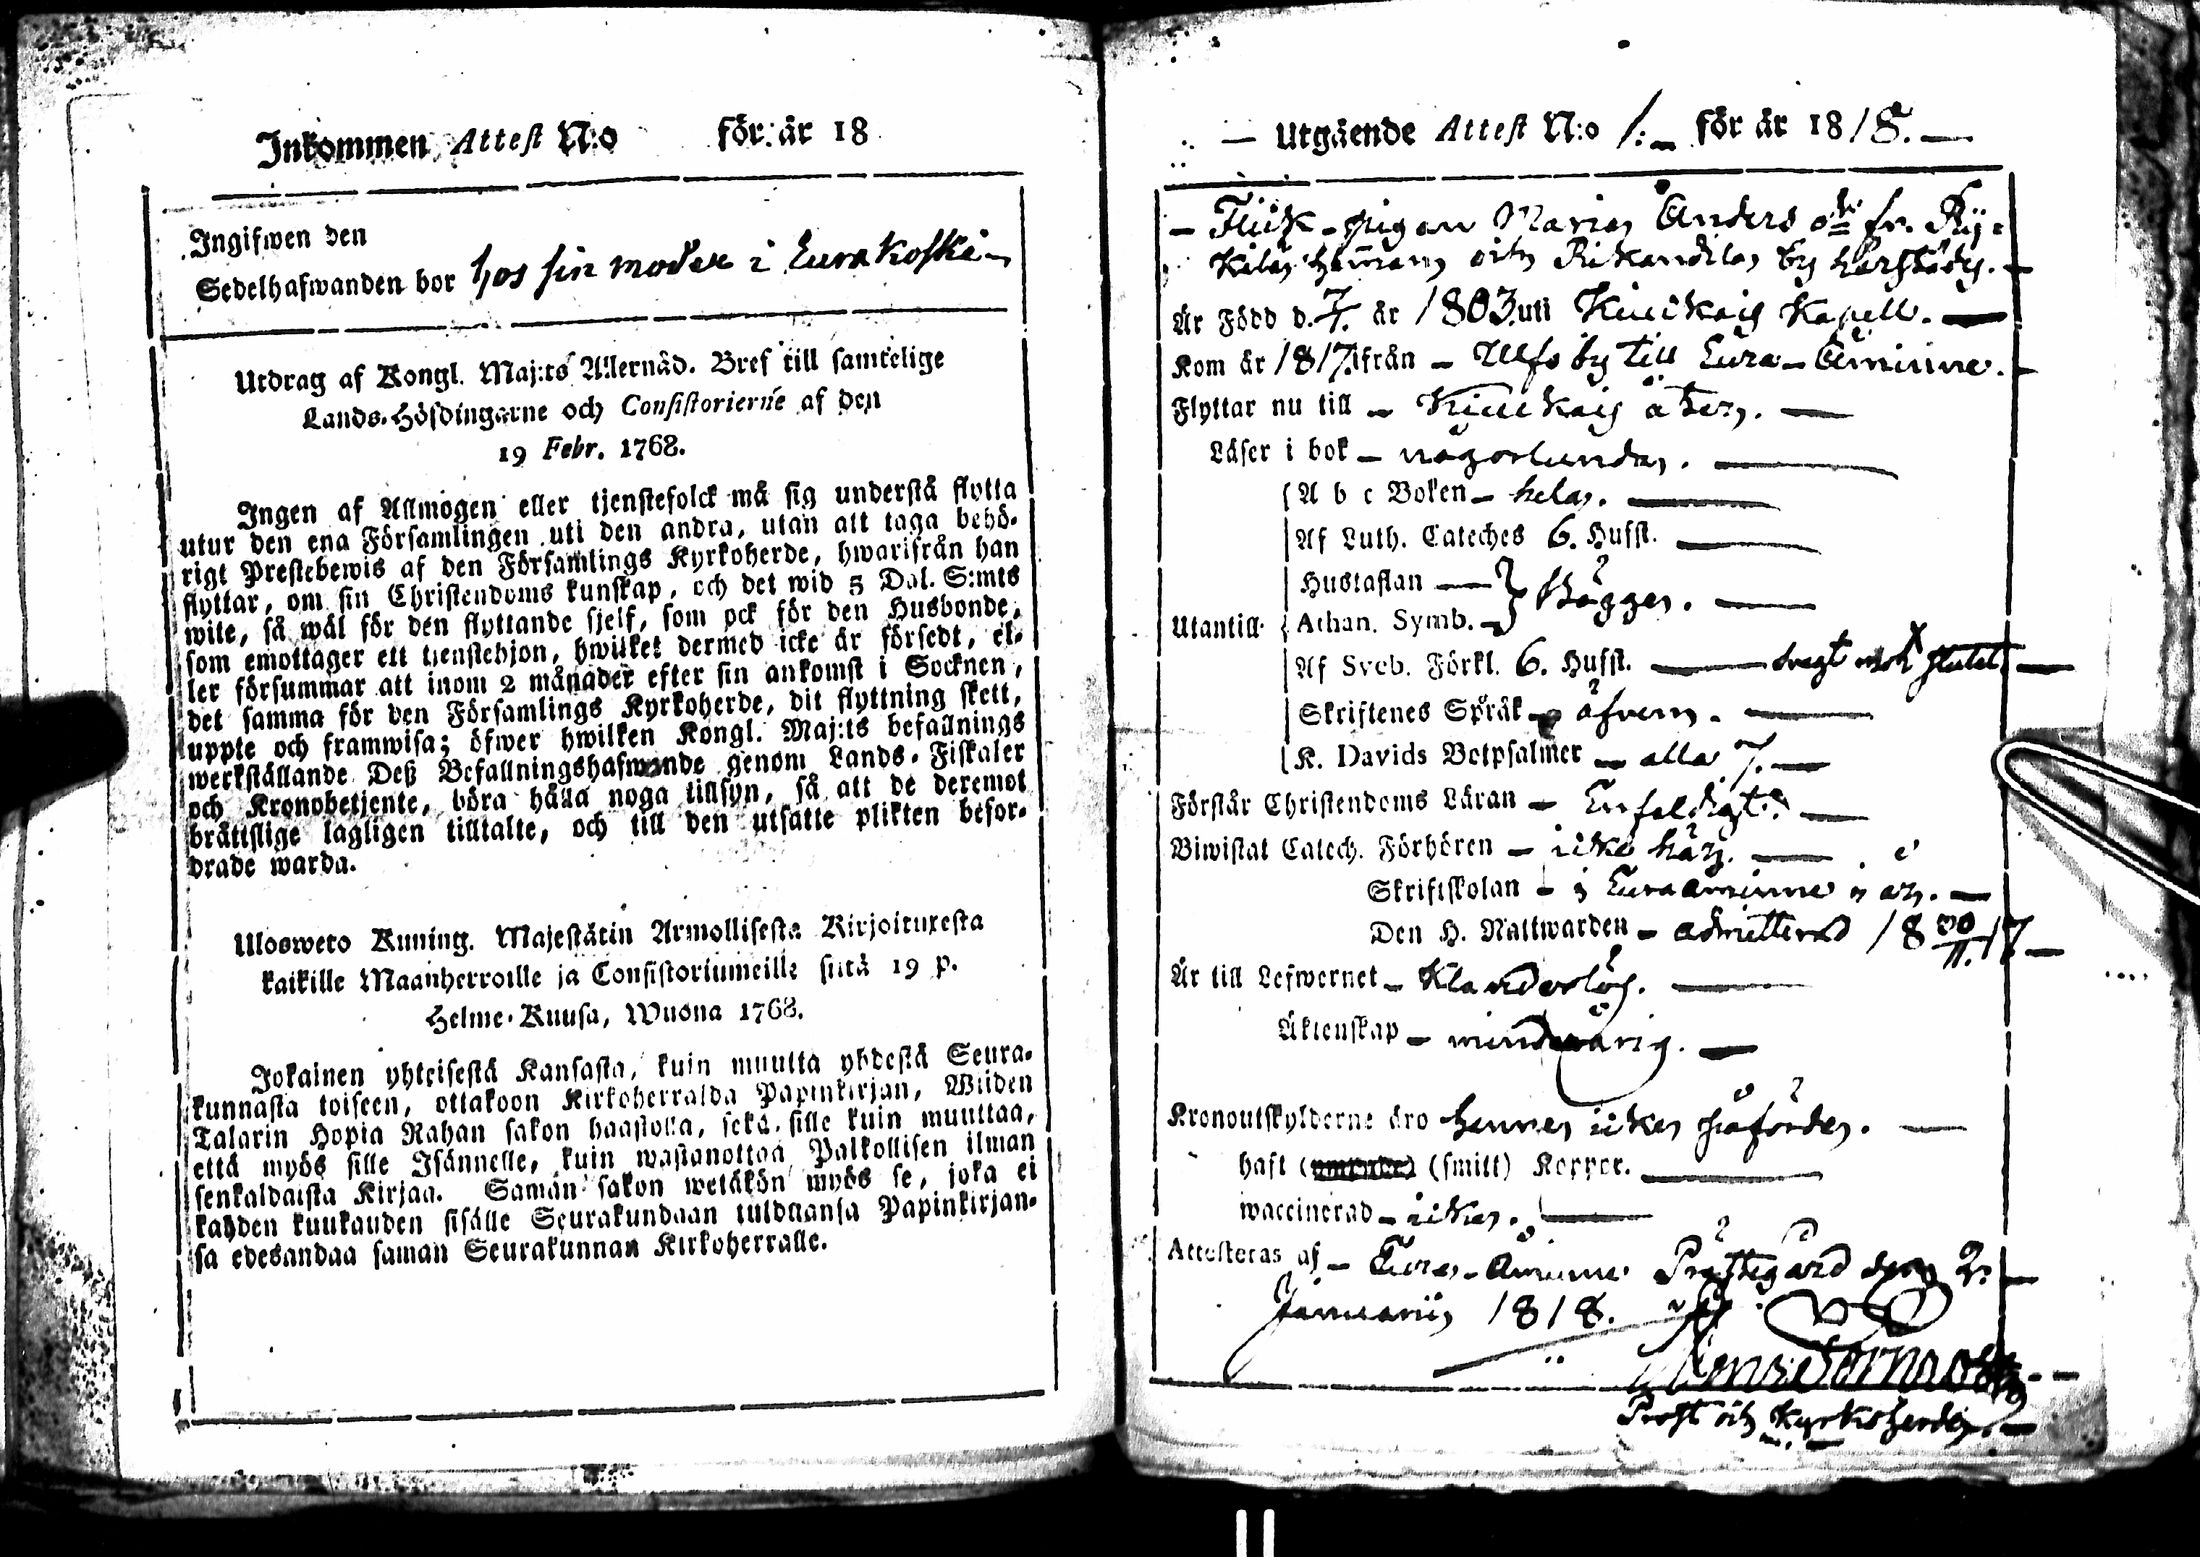 Inkommen Attest N:o för år 18
Ingifwen den
Sedelhafwanden bor hos sin moder i Eura koski
Utdrag af Kongl. Maj:ts Allernåd. Bref till samtelige
Lands-Höfdingarne och Consistorierne af den
19 Febr. 1768.
Ingen af Allmogen eller tjenstefolck må sig understå flytta
utur den ena Församlingen uti den andra, utan att taga behö-
rigt Prestebewis af den Församlings Kyrkoherde, hwarifrån han
flyttar, om sin Christendoms kunskap, och det wid 5 Dal. S:mts
wite, så wäl för den flyttande sjelf, som ock för den Husbonde,
som emottager ett tjenstehjon, hwilket dermed icke är försedt, el-
ler försummar att inom 2 månader efter sin ankomst i Socknen,
det samma för den Församlings Kyrkoherde, dit flyttning skett,
uppte och framwisa; öfwer hwilken Kongl. Maj:ts befallnings
werkställande Deß Befallningshafwande genom Lands-Fiskaler
och Kronobetjente, böra hålla noga tillsyn, så att de deremot
brättslige lagligen tilltalte, och till den utsatte plikten befor-
drade warda.
Ulosweto Kuning. Majestätin Armollisesta Kirjoituxesta
kaikille Maanherroille ja Consistoriumeille siitä 19 p.
Helme-Kuusa, Wuona 1768.
Jokainen yhteisestä Kansasta, kuin muutta yhdestä Seura-
kunnasta toiseen, ottakoon Kirkoherralda Papinkirjan, Wiiden
Talarin Hopia Rahan sakon haastolla, sekä sille kuin muuttaa,
että myös sille Isännelle, kuin wastanottaa Palkollisen ilman
senkaldaista Kirjaa. Saman sakon wetäkön myös se, joka ei
kahden kuukauden sisälle Seurakundaan tuldnansa Papinkirjan-
sa edesandaa saman Seurakunnan Kirkoherralle.
— Utgående Attest N:o 1:— för år 1818.—
— Flick-pigan Maria Anders dr fr. Ky-
kilä hemman och Rikandila by härstädes.—
Är Född d. 7. år 1803. uti Kiukais Kapell.—
Kom år 1817. ifrån — Ulfsby till Eura-Åminne.—
Flyttar nu till — Kiukais åter.—
Läser i bok — någorlunda.—
Utantill
A b c Boken — hela.—
Af Luth. Cateches 6. Hufst.—
Hustaflan —
Athan. Symb. — Bägge.—
Af Sveb. Förkl. 6. Hufst. — slutet —
Skriftenes Språk — äfven.—
K. Davids Botpsalmer — alla 7.—
Förstår Christendoms Läran — Enfaldigt.—
Biwistat Catech. Förhören — icke här.—
Skriftskolan — i Euraaminne i år.—
Den H. Nattwarden — admitterad 18 30/11. 17—
Är till Lefwernet — Klanderlös.—
Äktenskap — minderårig.—
Kronoutskylderne äro henne icke påförde.—
haft (smitt) Koppor.—
waccinerad — icke.—
Attesteras af — Eura-Åminne Prästegård den 2.—
Januarii 1818.
Prost och Kyrkoherde.—